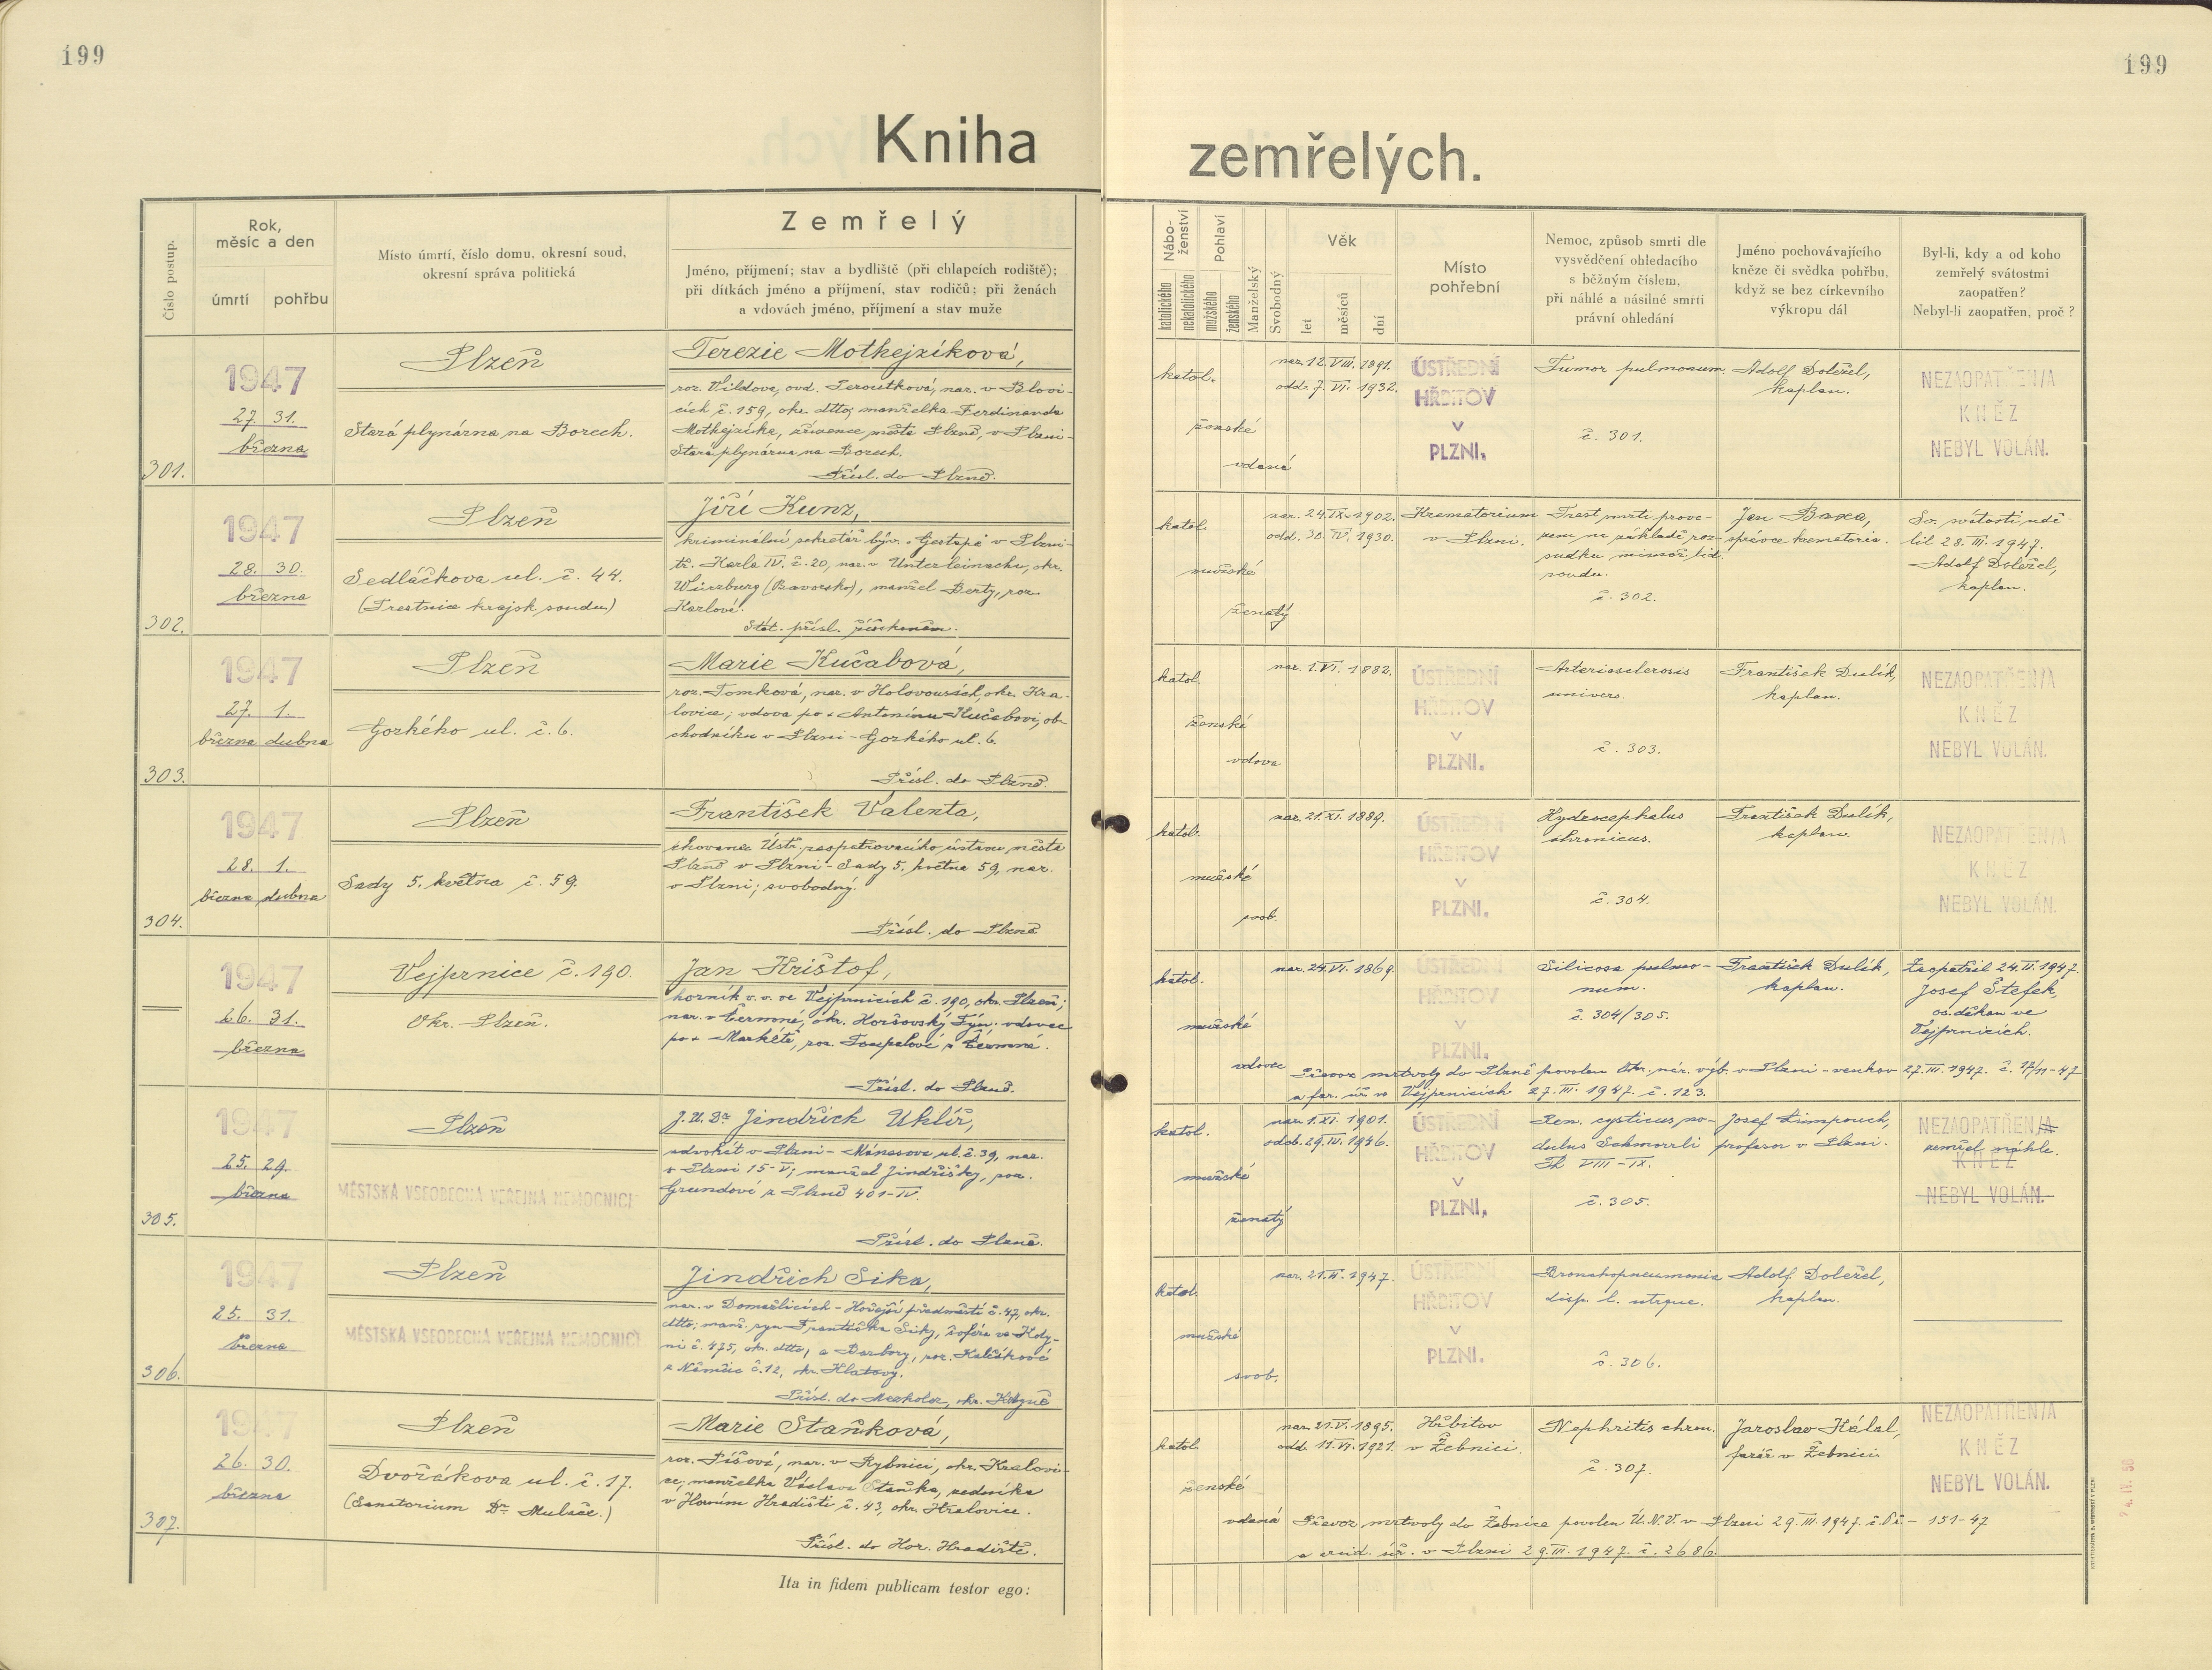 199
199
Kniha
zemřelých.
Číslo postup.
Rok,
měsíc a den
úmrtí
pohřbu
Místo úmrtí, číslo domu, okresní soud,
okresní správa politická
Zemřelý
Jméno, příjmení; stav a bydliště (při chlapcích rodiště);
při dítkách jméno a příjmení, stav rodičů; při ženách
a vdovách jméno, příjmení a stav muže
Nábo-
ženství
katolického
nekatolického
Pohlaví
mužského
ženského
Manželský
Svobodný
Věk
let
měsíců
dní
Místo
pohřební
Nemoc, způsob smrti dle
vysvědčení ohledacího
s běžným číslem,
při náhlé a násilné smrti
právní ohledání
Jméno pochovávajícího
kněze či svědka pohřbu,
když se bez církevního
výkropu dál
Byl-li, kdy a od koho
zemřelý svátostmi
zaopatřen?
Nebyl-li zaopatřen, proč?
301.
1947
27. 31.
března
Plzeň
Stará plynárna na Borech.
Terezie Mothejzíková,
roz. Wildova, ovd. Teroutková, nar. v Blovi-
cích č. 159, okr. dtto; manželka Ferdinanda
Mothejzíka, zřízence města Plzně, v Plzni-
Stará plynárna na Borech.
Přísl. do Plzně.
katol.
ženské
vdaná
nar. 12. VIII. 1891.
odd. 7. VI. 1932.
ÚSTŘEDNÍ
HŘBITOV
V
PLZNI.
Tumor pulmonum
č. 301.
Adolf Doležel,
kaplan.
NEZAOPATŘEN/A
KNĚZ
NEBYL VOLÁN.
302.
1947
28. 30.
března
Plzeň
Sedláčkova ul. č. 44.
(Trestnice krajsk. soudu)
Jiří Kunz,
kriminální sekretář býv. "Gestapa" v Plzni-
tř. Karla IV. č. 20, nar. v Unterleinachu, okr.
Würzburg (Bavorsko), manžel Berty, roz.
Karlové.
Stát. přísl. říšskoněm.
katol.
mužské
ženatý
nar. 24. IX. 1902.
odd. 30. IV. 1930.
Krematorium
v Plzni.
Trest smrti prove-
zen na základě roz-
sudku mimoř. lid.
soudu.
č. 302.
Jan Baxa,
správce krematoria.
Sv. svátosti udě-
lil 28. III. 1947.
Adolf Doležel,
kaplan.
303.
1947
27. 1.
března dubna
Plzeň
Gorkého ul. č. 6.
Marie Kučabová,
roz. Tomková, nar. v Holovousích, okr. Kra-
lovice; vdova po + Antonínu Kučabovi, ob-
chodníku v Plzni - Gorkého ul. 6.
Přísl. do Plzně.
katol.
ženské
vdova
nar. 1. VI. 1882.
ÚSTŘEDNÍ
HŘBITOV
V
PLZNI.
Arteriosclerosis
univers.
č. 303.
František Dulík,
kaplan.
NEZAOPATŘEN/A
KNĚZ
NEBYL VOLÁN.
304.
1947
28. 1.
března dubna
Plzeň
Sady 5. května č. 59.
František Valenta,
chovanec Ústř. zaopatřovacího ústavu města
Plzně v Plzni - Sady 5. května 59, nar.
v Plzni; svobodný.
Přísl. do Plzně
katol.
mužské
svob.
nar. 21. XI. 1889.
ÚSTŘEDNÍ
HŘBITOV
V
PLZNI.
Hydrocephalus
chronicus.
č. 304.
František Dulík,
kaplan.
NEZAOPATŘEN/A
KNĚZ
NEBYL VOLÁN.
1947
26. 31.
března
Vejprnice č. 190.
Okr. Plzeň.
Jan Krištof,
horník v. v. ve Vejprnicích č. 190, okr. Plzeň;
nar. v Čermné, okr. Horšovský Týn; vdovec
po + Markétě, roz. Toupalové z Čermné.
Přísl. do Plzně.
katol.
mužské
vdovec
nar. 24. VI. 1869.
ÚSTŘEDNÍ
HŘBITOV
V
PLZNI.
Silicosa pulmo-
num.
č. 304/305.
František Dulík,
kaplan.
Zaopatřil 24. II. 1947.
Josef Štefek,
os. děkan ve
Vejprnicích.
Převoz mrtvoly do Plzně povolen Okr. nár. výb. v Plzni - venkov 27. III. 1947. č. 17/11-47
a far. úř. ve Vejprnicích 27. III. 1947. č. 123.
305.
1947
25. 29.
března
Plzeň
MĚSTSKÁ VŠEOBECNÁ VEŘEJNÁ NEMOCNICE
J. U. Dr. Jindřich Uklír,
advokát v Plzni - Mánesova ul. č. 39, nar.
v Plzni 15-V; manžel Jindřišky, roz.
Grundové z Plzně 401-IV.
Přísl. do Plzně.
katol.
mužské
ženatý
nar. 1. XI. 1901.
oddb. 29. IV. 1946.
ÚSTŘEDNÍ
HŘBITOV
V
PLZNI.
Ren. cysticus, no-
dulus Schmorrli
Th VIII-IX.
č. 305.
Josef Limpouch,
profesor v Plzni.
NEZAOPATŘEN/A
zemřel náhle.
KNĚZ
NEBYL VOLÁN.
306.
1947
25. 31.
března
Plzeň
MĚSTSKÁ VŠEOBECNÁ VEŘEJNÁ NEMOCNICE
Jindřich Sika,
nar. v Domažlicích - Hořejší předměstí č. 47, okr.
dtto; manž. syn Františka Siky, šoféra ve Kdy-
ni č. 475, okr. dtto, a Barbory, roz. Kalčíkové
z Němčic č. 12, okr. Klatovy.
Přísl. do Mezholez, okr. Kdyně
katol.
mužské
svob.
nar. 21. II. 1947.
ÚSTŘEDNÍ
HŘBITOV
V
PLZNI.
Bronchopneumonia
disp. l. utrque.
č. 306.
Adolf Doležel,
kaplan.
307.
1947
26. 30.
března
Plzeň
Dvořákova ul. č. 17.
(Sanatorium Dr. Mulače.)
Marie Staňková,
roz. Píšová, nar. v Rybnici, okr. Kralovi-
ce; manželka Václava Staňka, zedníka
v Horním Hradišti č. 43, okr. Kralovice.
Přísl. do Hor. Hradiště.
katol.
ženské
vdaná
nar. 21. V. 1895.
odd. 11. VI. 1921.
Hřbitov
v Žebnici.
Nephritis chron.
č. 307.
Jaroslav Kálal,
farář v Žebnici
NEZAOPATŘEN/A
KNĚZ
NEBYL VOLÁN.
Převoz mrtvoly do Žebnice povolen Ú.N.V. v Plzni 29. III. 1947. č. Př - 151-47
a arcid. úř. v Plzni 29. III. 1947. č. 2686.
Ita in fidem publicam testor ego: